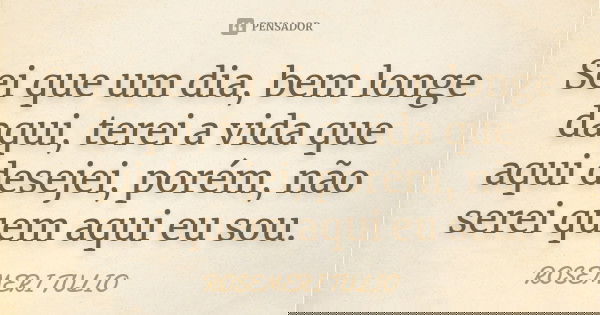 PENSADOR
Sei que um dia, bem longe
daqui, terei a vida que
aqui desejei, porém, não
serei quem aqui eu sou.
ROSEMERI TULIO